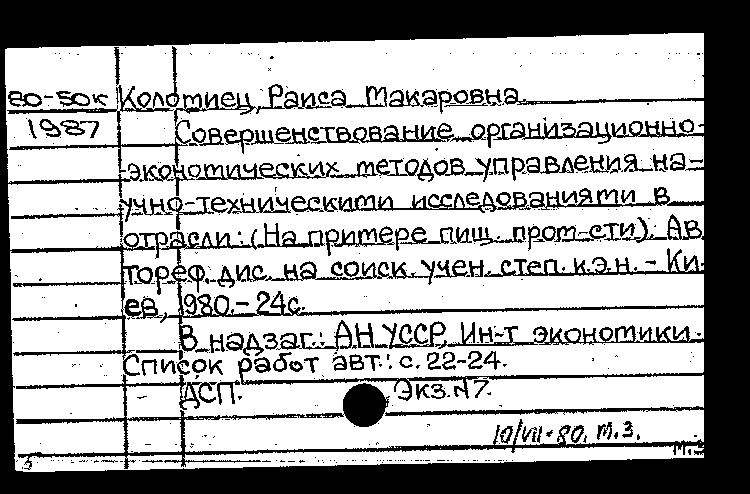 80-50к Коломиец, Раиса Макаровна
1987 Совершенствование организационно-
экономических методов управления на-
учно-техническими исследованиями в
отрасли: (На примере пищ. пром-сти). Ав
тореф. дис. на соиск. учен. степ. к.э.н. - Ки-
ев, 980.-24с.
В надзаг.: АН УССР, Ин-т экономики.
Список работ авт.: с. 22-24.
ДСП. Экз.N7.
10/VII-80. М.З.
М.З